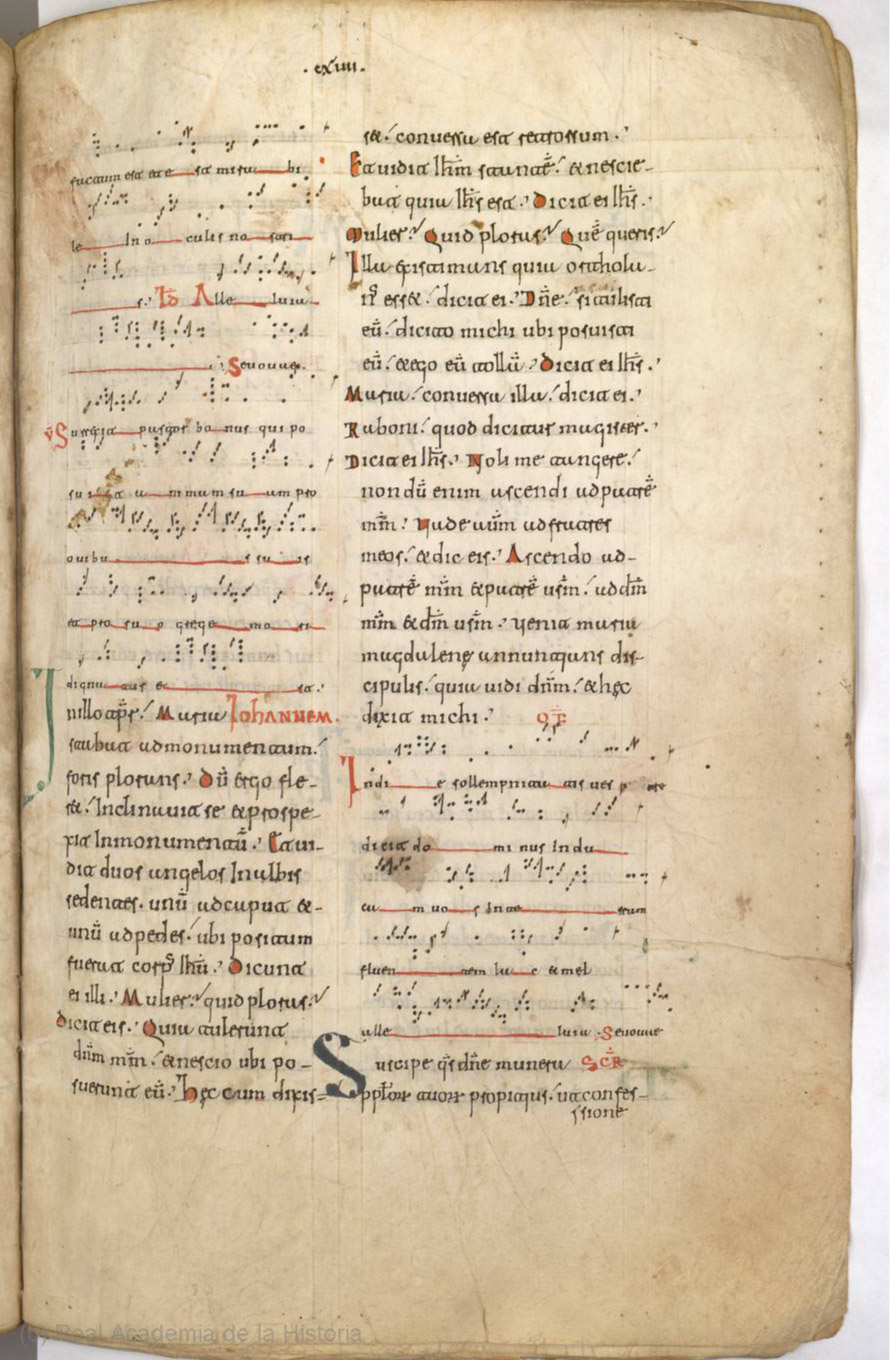 . cxiiii .
factum est ete sa misu bi
le In o culis nos tri
s: ID Alle luia
Seuouae.
V Surrexit pastor bo nus qui po
suit a ni mam su am pro
ouibu s su is
et pro su o grege mo ri
dignatus es t.
In illo tp̄r: Maria IOHANNEM.
stabat ad monumentum:
foris plorans. Dū ergo fle-
ret: Inclinauit se et prospe-
xit In monumentū. Et ui-
dit duos angelos In albis
sedentes. unū ad caput et-
unū ad pedes: ubi positum
fuerat corp̄ ih̄u. Dicunt
ei illi. Mulier: quid ploras:
Dicit eis. Quia tulerunt
dn̄m mm̄: et nescio ubi po-
suerunt eū. Hęc cum dixis-
set: conuersa est retrorsum.
Et uidit ih̄m stantē: et nescie-
bat quia ih̄s est. Dicit ei ih̄s.
Mulier: Quid ploras: Quē queris:
Illa existimans quia orthola-
n̄s esset: dicit ei. Dn̄e: si tulisti
eū: dicito michi ubi posuisti
eū: et ego eū tollā. Dicit ei ih̄s.
Maria: conuersa illa: dicit ei.
Raboni: quod dicitur magister.
Dicit ei ih̄s. Noli me tangere:
nondū enim ascendi ad patrē
mm̄. Uade autm̄ ad fratres
meos: et dic eis. Ascendo ad-
patrē mm̄ et patrē usm̄: ad dm̄
mm̄ et dm̄ usm̄. Uenit maria
magdalenę annuntians dis-
cipulis: quia uidi dnm̄: et hęc
dixit michi. OF
Indi e sollempnita tis ues tre
dicit do mi nus Indu
ca m uo s In ter ram
fluen tem lac et mel
alle luia Seuouae
Suscipe qs̄ dn̄e munera SCR
pplōꝝ tuoꝝ propitius: ut confes-
sione
(c) Real Academia de la Historia